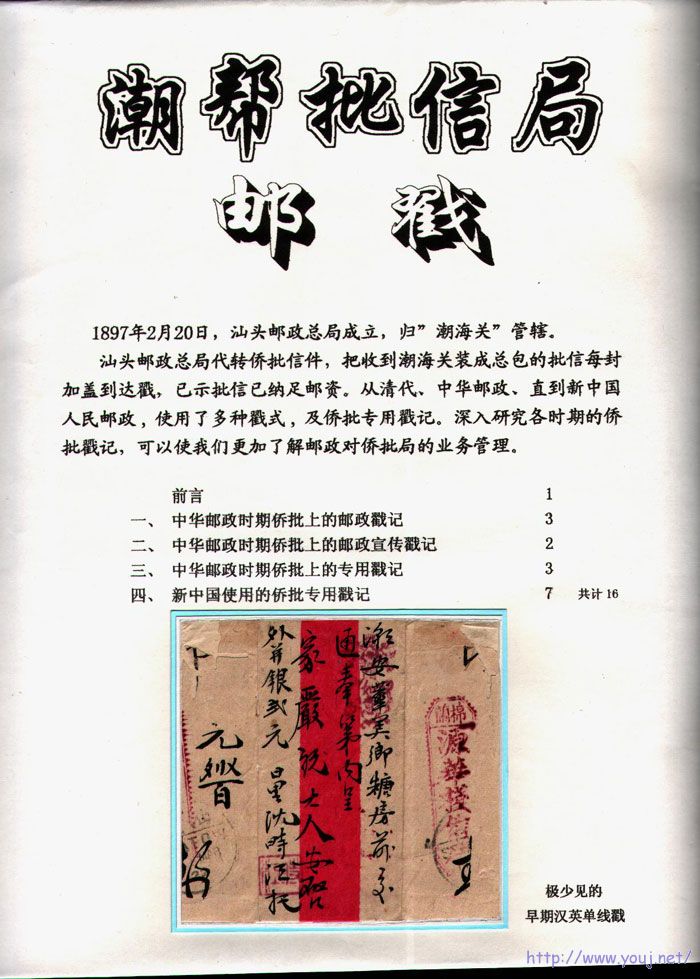 潮帮批信局
邮戳
1897年2月20日，汕头邮政总局成立，归”潮海关”管辖。
汕头邮政总局代转侨批信件，把收到潮海关装成总包的批信每封
加盖到达戳，已示批信已纳足邮资。从清代、中华邮政、直到新中国
人民邮政，使用了多种戳式，及侨批专用戳记。深入研究各时期的侨
批戳记，可以使我们更加了解邮政对侨批局的业务管理。
前言 1
一、 中华邮政时期侨批上的邮政戳记 3
二、 中华邮政时期侨批上的邮政宣传戳记 2
三、 中华邮政时期侨批上的专用戳记 3
四、 新中国使用的侨批专用戳记 7 共计16
家嚴
外弁銀弍元
元
极少见的
早期汉英单线戳
http://www.youj.net/